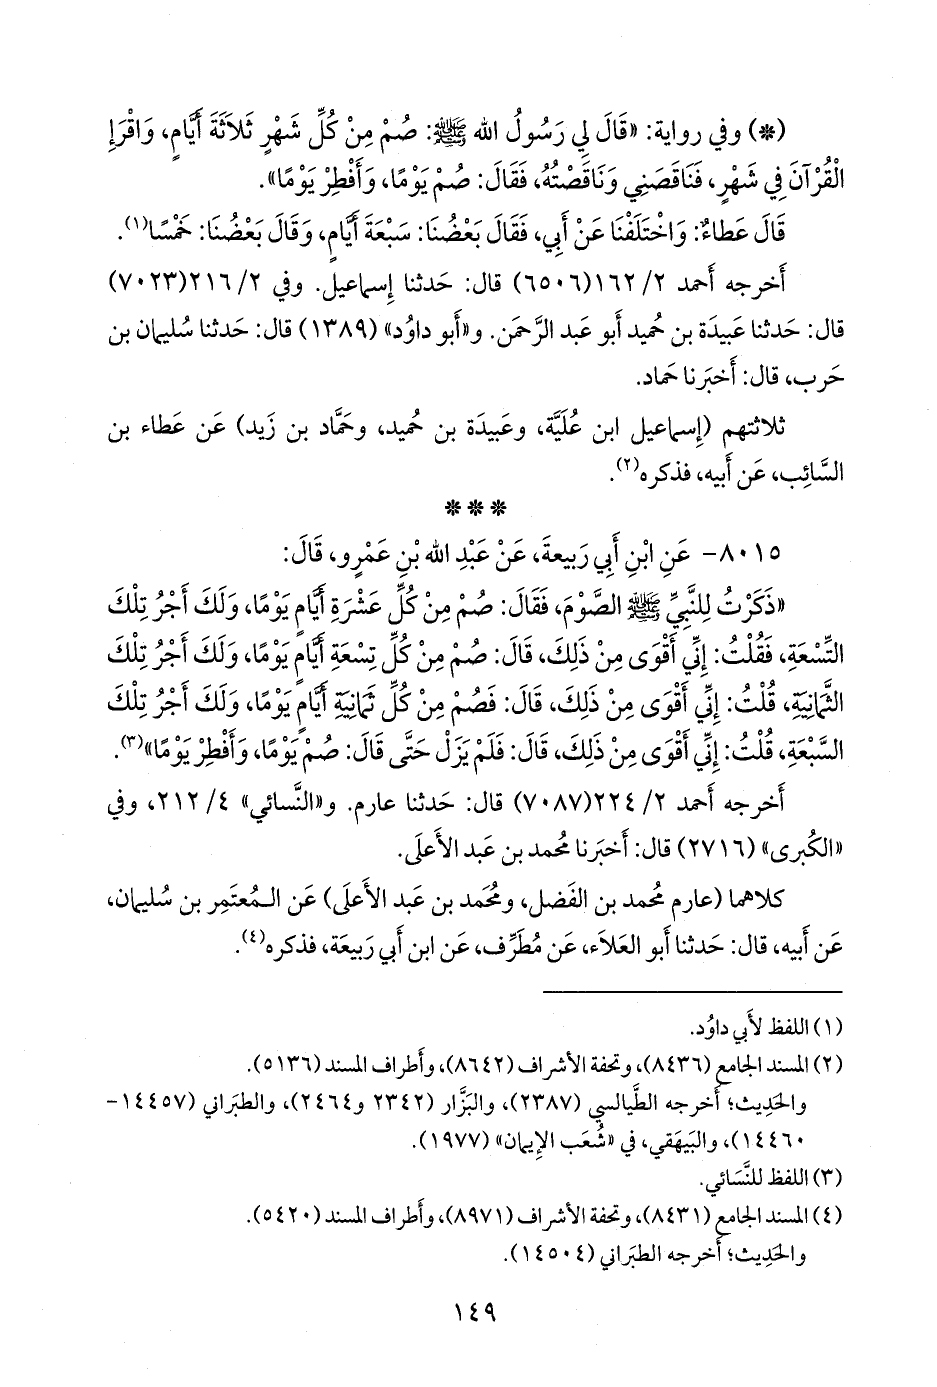 (*) وفي رواية: «قَالَ لِي رَسُولُ الله ﷺ: صُمْ مِنْ كُلِّ شَهْرٍ ثَلاَثَةَ أَيَّامٍ، وَاقْرَإِ
الْقُرْآنَ فِي شَهْرٍ، فَنَاقَصَنِي وَنَاقَصْتُهُ، فَقَالَ: صُمْ يَوْمًا، وَأَفْطِرْ يَوْمًا».
قَالَ عَطاءٌ: وَاخْتَلَفْنَا عَنْ أَبِي، فَقَالَ بَعْضُنَا: سَبْعَةَ أَيَّامٍ، وَقَالَ بَعْضُنَا: خَمْسًا(١).
أخرجه أحمد ٢/ ١٦٢(٦٥٠٦) قال: حَدثنا إسماعيل. وفي ٢/ ٢١٦(٧٠٢٣)
قال: حَدثنا عَبيدَة بن حُميد أبو عبد الرَّحمَن. و«أبو داوُد» (١٣٨٩) قال: حَدثنا سُليمان بن
حَرب، قال: أَخبَرنا حَماد.
ثلاثتهم (إسماعيل ابن عُلَيَّة، وعَبيدَة بن حُميد، وحَمَّاد بن زَيد) عَن عَطاء بن
السَّائِب، عَن أَبيه، فذكره(٢).
***
٨٠١٥- عَنِ ابْنِ أَبِي رَبِيعةَ، عَنْ عَبْدِ الله بْنِ عَمْرٍو، قَالَ:
«ذَكَرْتُ لِلنَّبِيِّ ﷺ الصَّوْمَ، فَقَالَ: صُمْ مِنْ كُلِّ عَشْرَةِ أَيَّامٍ يَوْمًا، وَلَكَ أَجْرُ تِلْكَ
التِّسْعَةِ، فَقُلْتُ: إِنِّي أَقْوَى مِنْ ذَلِكَ، قَالَ: صُمْ مِنْ كُلِّ تِسْعَةِ أَيَّامٍ يَوْمًا، وَلَكَ أَجْرُ تِلْكَ
الثَّمَانِيَةِ، قُلْتُ: إِنِّي أَقْوَى مِنْ ذَلِكَ، قَالَ: فَصُمْ مِنْ كُلِّ ثَمَانِيَةِ أَيَّامٍ يَوْمًا، وَلَكَ أَجْرُ تِلْكَ
السَّبْعَةِ، قُلْتُ: إِنِّي أَقْوَى مِنْ ذَلِكَ، قَالَ: فَلَمْ يَزَلْ حَتَّى قَالَ: صُمْ يَوْمًا، وَأَفْطِرْ يَوْمًا»(٣).
أخرجه أحمد ٢/ ٢٢٤(٧٠٨٧) قال: حَدثنا عارم. و«النَّسائي» ٤/ ٢١٢، وفي
«الكُبرى» (٢٧١٦) قال: أَخبَرنا مُحمد بن عَبد الأَعلَى.
كلاهما (عارم مُحمد بن الفَضل، ومُحَمد بن عَبد الأَعلَى) عَن المُعتَمِر بن سُليمان،
عَن أَبيه، قال: حَدثنا أبو العَلاَء، عَن مُطَرِّف، عَن ابن أَبي رَبيعَة، فذكره(٤).
(١) اللفظ لأَبي داوُد.
(٢) المسند الجامع (٨٤٣٦)، وتحفة الأشراف (٨٦٤٢)، وأطراف المسند (٥١٣٦).
والحَدِيث؛ أَخرجه الطَّيالسي (٢٣٨٧)، والبَزَّار (٢٣٤٢ و٢٤٦٤)، والطبَراني (١٤٤٥٧-
١٤٤٦٠)، والبَيهَقي، في «شُعَب الإِيمان» (١٩٧٧).
(٣) اللفظ للنَّسَائي.
(٤) المسند الجامع (٨٤٣١)، وتحفة الأشراف (٨٩٧١)، وأطراف المسند (٥٤٢٠).
والحَدِيث؛ أَخرجه الطبَراني (١٤٥٠٤).
١٤٩